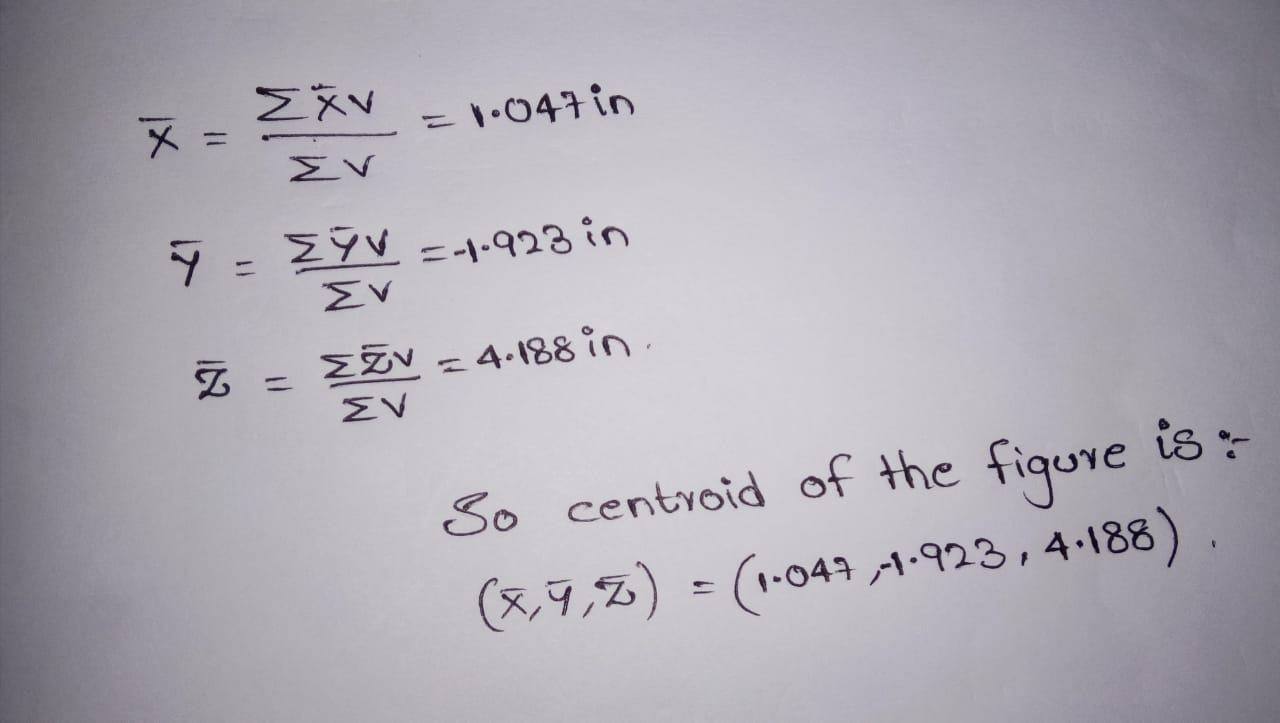 x̄ = Σx̄V / ΣV = 1.047in
ȳ = ΣȳV / ΣV = -1.923 in
z̄ = Σz̄V / ΣV = 4.188 in.
So centroid of the figure is :-
(x̄, ȳ, z̄) = (1.047, -1.923, 4.188).